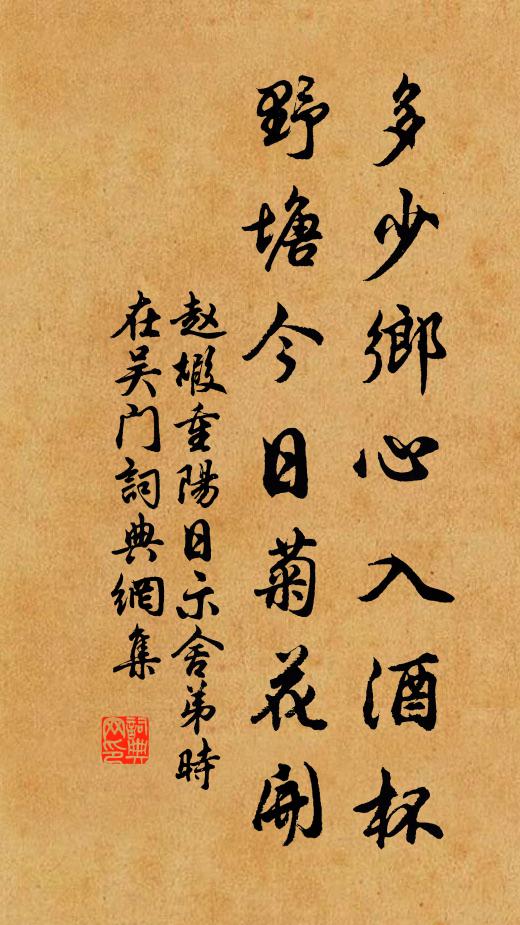 多少鄉心入酒杯
野塘今日菊花開
赵嘏重陽日示舍弟時
在吴门詞典網集
詞典網印